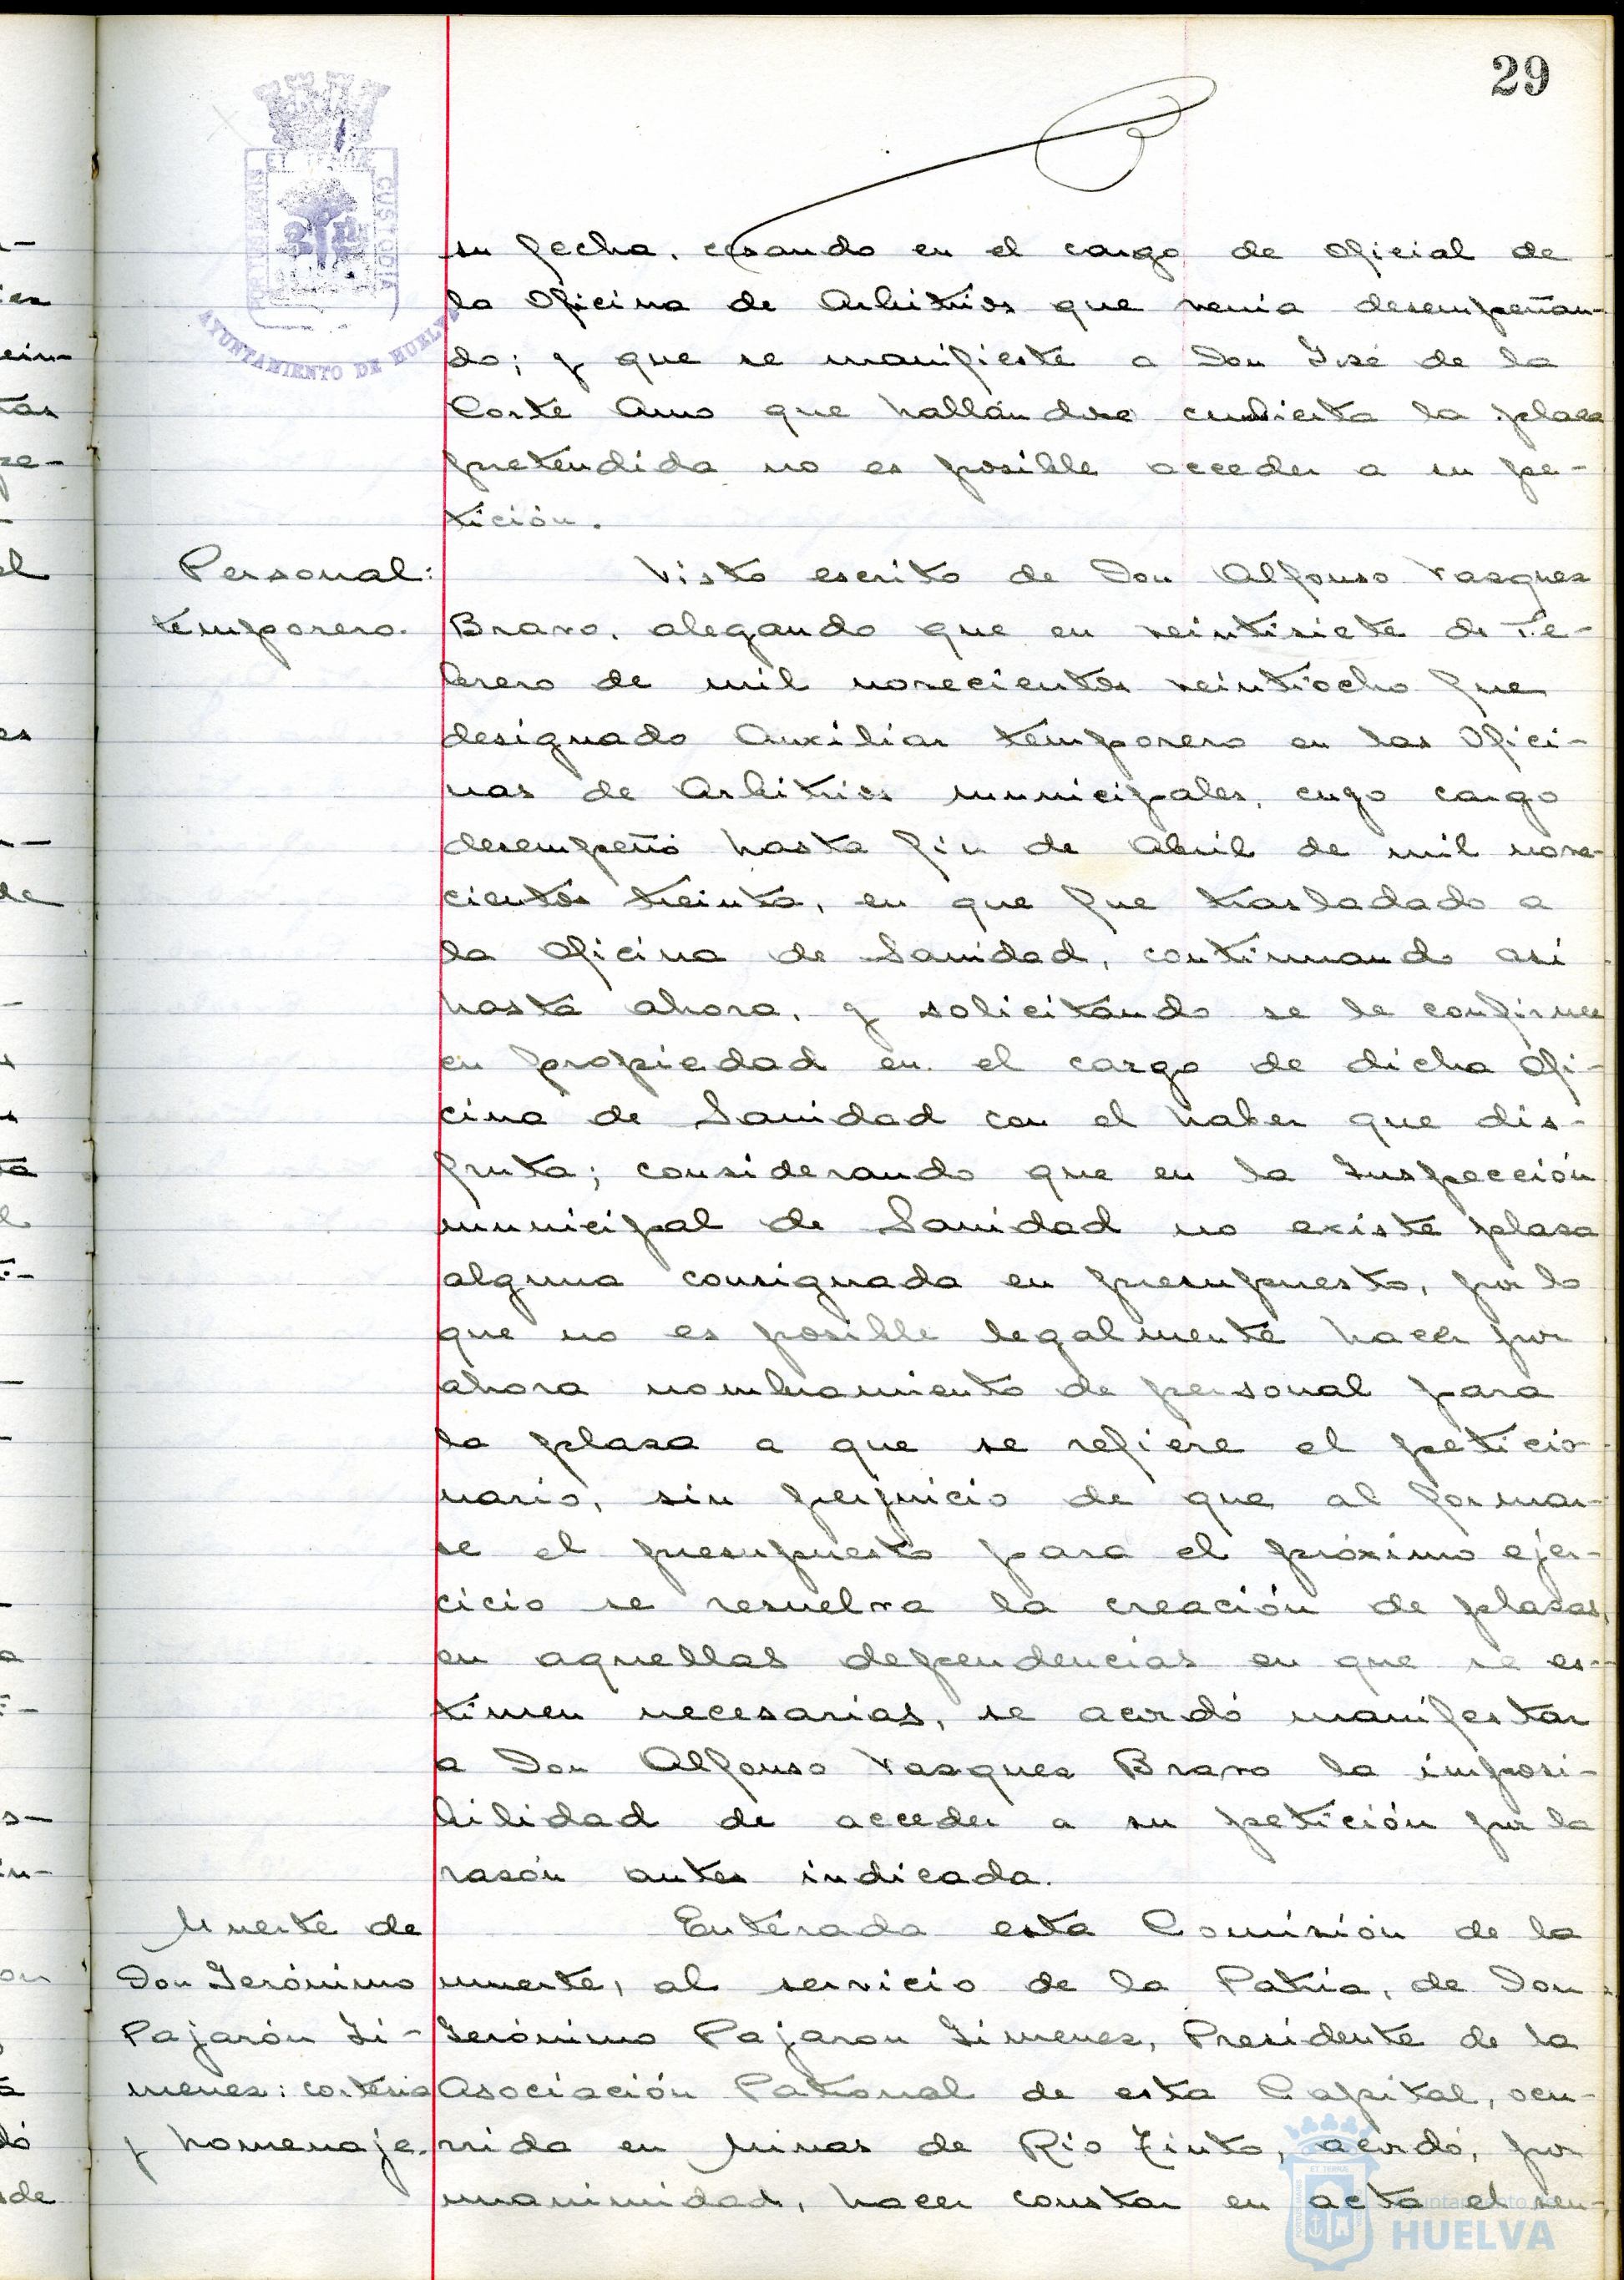 29
AYUNTAMIENTO DE HUELVA
su fecha, cesando en el cargo de Oficial de
la Oficina de Arbitrios que venia desempeñan-
do; y que se manifieste a Don José de la
Corte Amo que hallándose cubierta la plaza
pretendida no es posible acceder a su pe-
tición.
Personal:
temporero.
Visto escrito de Don Alfonso Vazquez
Bravo, alegando que en veintisiete de Fe-
brero de mil novecientos veintiocho fue
designado Auxiliar temporero en las Ofici-
nas de Arbitrios municipales, cuyo cargo
desempeñó hasta fin de Abril de mil nove-
cientos treinta, en que fue trasladado a
la Oficina de Sanidad, continuando asi
hasta ahora, y solicitando se le confirme
en propiedad en el cargo de dicha Ofi-
cina de Sanidad con el haber que dis-
fruta; considerando que en la Inspección
municipal de Sanidad no existe plaza
alguna consignada en presupuesto, por lo
que no es posible legalmente hacer por
ahora nombramiento de personal para
la plaza a que se refiere el peticio-
nario, sin perjuicio de que al formar-
se el presupuesto para el próximo ejer-
cicio se resuelva la creación de plazas,
en aquellas dependencias en que se es-
timen necesarias, se acordó manifestar
a Don Alfonso Vazquez Bravo la imposi-
bilidad de acceder a su petición por la
razón antes indicada.
Muerte de
Don Jerónimo
Pajarón Ji-
menez: cortesia
y homenaje.
Enterada esta Comisión de la
muerte, al servicio de la Patria, de Don
Jerónimo Pajaron Jimenez, Presidente de la
Asociación Patronal de esta Capital, ocu-
rrida en Minas de Rio Tinto, acordó, por
unanimidad, hacer constar en acta el sen-
HUELVA